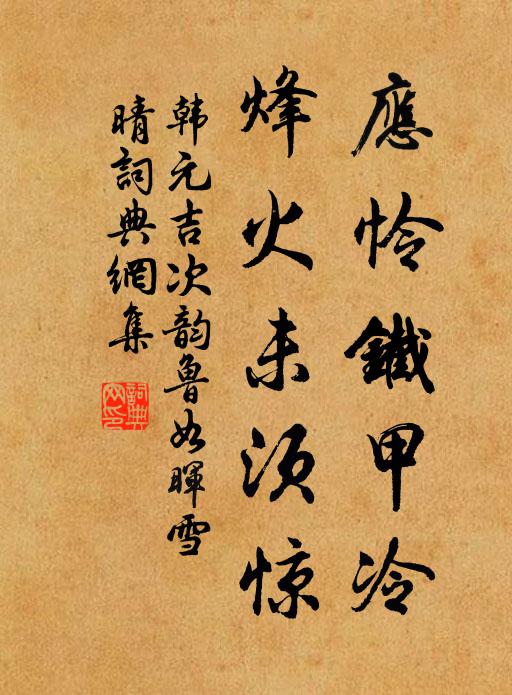 應怜鐵甲冷
烽火未须惊
韩元吉次韵鲁如晖雪
晴词典网集
词典
网印